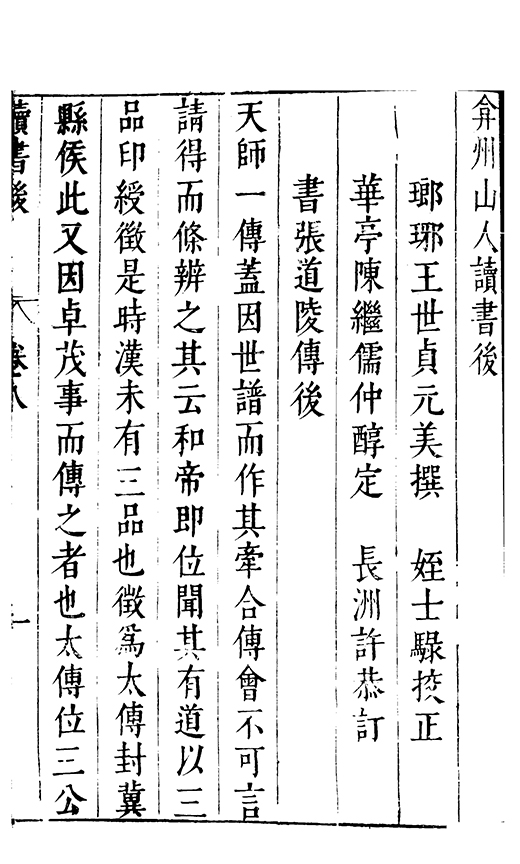 弇州山人讀書後
瑯琊王世貞元美撰　姪士騄挍正
華亭陳繼儒仲醇定　長洲許恭訂
書張道陵傳後
天師一傳蓋因世譜而作其牽合傳會不可言
請得而條辨之其云和帝即位聞其有道以三
品印綬徵是時漢未有三品也徵爲太傳封冀
縣侯此又因卓茂事而傳之者也太傳位三公
讀書後　卷八　一